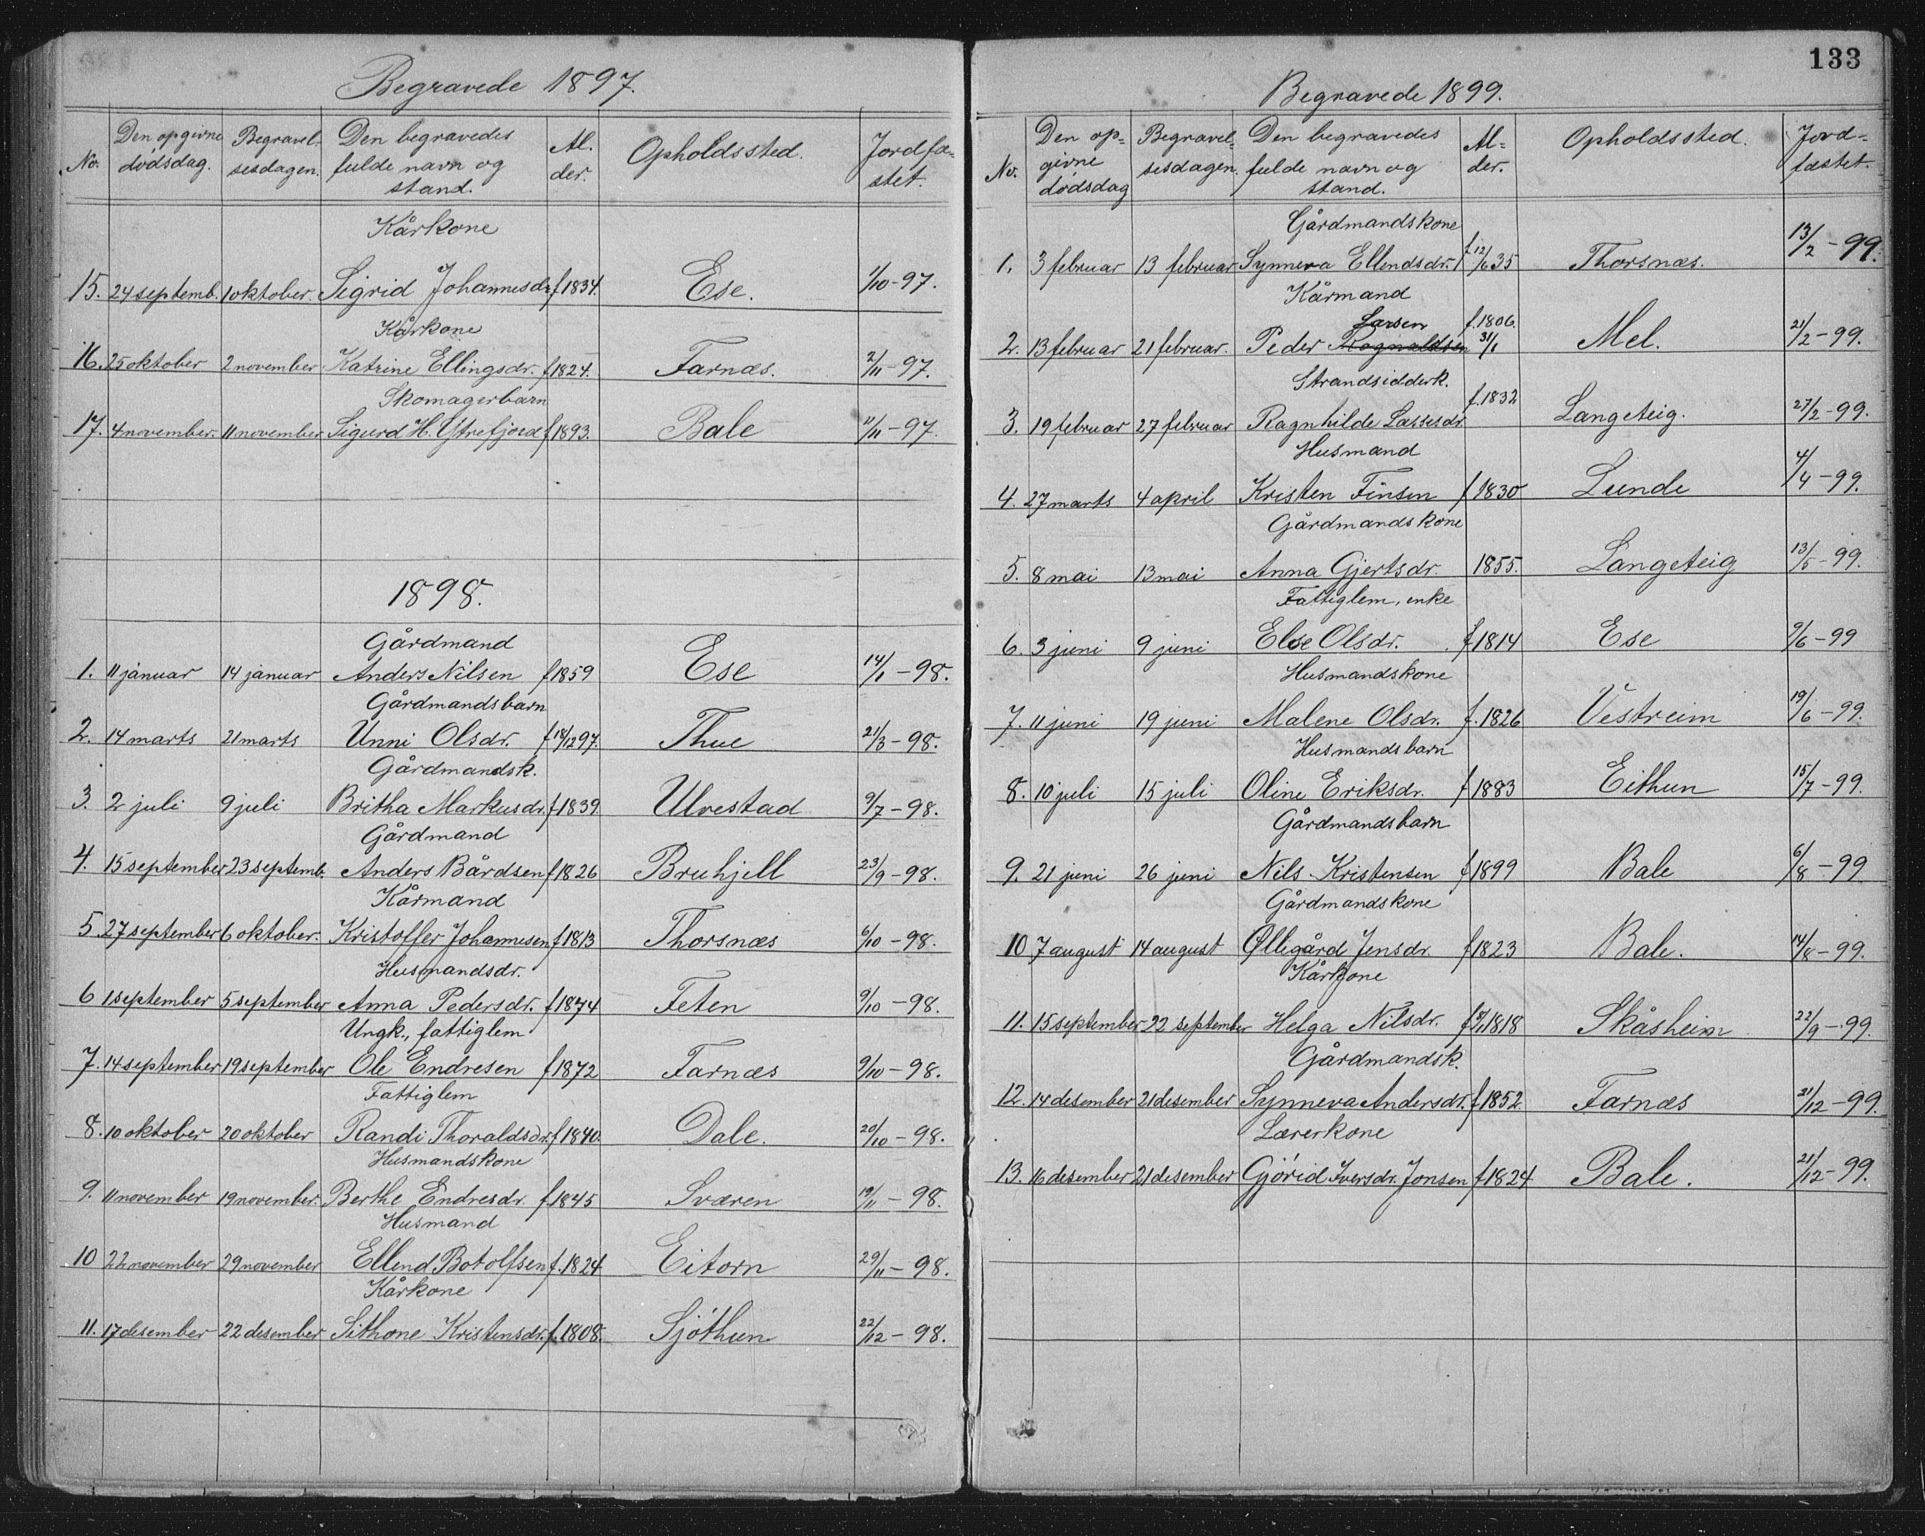 Begravede 1897.
No. Den opgivne dødsdag. Begravelsesdagen. Den begravedes fulde navn og stand. Alder. Opholdssted. Jordfæstet.
Kårkone
15. 24 septemb. 1 oktober. Sigrid Johannesdr f 1834. Ese. 1/10-97.
Kårkone
16. 25 oktober 2 november Katrine Ellingsdr. f 1824. Farnæs. 2/11-97.
Skomagerbarn
17. 4 november. 11 november Sigurd H. Ytrefjord f 1893. Bale 11/11-97.
1898.
Gårdmand
1. 11 januar 14 januar Anders Nilsen f 1859 Ese 14/1-98.
Gårdmandsbarn
2. 14 marts 21 marts Unni Olsdr. f 18/12 97. Thue 21/3-98.
Gårdmandsk.
3. 2 juli 9 juli Britha Markusdr. f 1839 Ulvestad 9/7-98.
Gårdmand
4. 15 september 23 septemb. Anders Bårdsen f 1826 Bruhjell 23/9-98.
Kårmand
5. 27 september 6 oktober. Kristoffer Johannesen f 1813 Thorsnæs 6/10-98.
Husmandsdr.
6 1 september 5 september Anna Pedersdr. f 1874 Feten 9/10-98.
Ungk., fattiglem
7. 14 september 19 september Ole Endresen f 1872 Farnæs 9/10-98.
Fattiglem
8. 10 oktober 20 oktober Randi Thoraldsdr. f 1840. Dale. 20/10-98.
Husmandskone
9. 11 november 19 november Berthe Endresdr. f. 1845 Sværen 19/11-98.
Husmand
10 22 november 29 november Ellend Botolfsen f. 1824 Eitorn 29/11-98.
Kårkone
11. 17 desember 22 desember Sithone Kristensdr. f. 1808. Sjøthun 22/12-98.
133
Begravede 1899.
No. Den opgivne dødsdag Begravelsesdagen. Den begravedes fulde navn og stand. Alder. Opholdssted. Jordfæstet.
Gårdmandskone
1. 3 februar 13 februar Synneva Ellendsdr. f. 12/6 35 Thorsnæs. 13/2-99.
Kårmand
Larsen f. 1806.
2. 13 februar 21 februar. Peder Ragnaldsen 31/1 Mel. 21/2-99.
Strandsidderk.
3. 19 februar 27 februar Ragnhilde Lassesdr. f. 1832 Langeteig. 27/2-99.
Husmand
4. 27 marts 4 april Kristen Finsen f 1830 Lunde 4/4-99.
Gårdmandskone
5. 8 mai 13 mai Anna Gjertsdr. 1855. Langeteig 13/5-99.
Fattiglem, enke
6. 3 juni 9 juni Else Olsdr. f. 1814 Ese 9/6-99
Husmandskone
7. 11 juni 19 juni Malene Olsdr. f. 1826 Vestreim 19/6-99.
Husmandsbarn
8. 10 juli 15 juli Oline Eriksdr. f 1883 Eithun 15/7-99.
Gårdmandsbarn
9. 21 juni 26 juni Nils Kristensen f 1899 Bale 6/8-99
Gårdmandskone
10 7 august 14 august Øllegård Jensdr. f 1823 Bale. 14/8-99.
Kårkone
11. 15 september 22 september Helga Nilsdr. f 1818 Skåsheim 22/9-99.
Gårdmandsk.
12. 14 desember 21 desember Synneva Andersdr. f 1852 Farnæs 21/12-99.
Lærerkone
13. 16 desember 21 desember Gjørid Iversdr. Jonsen f 1824 Bale. 21/12-99.